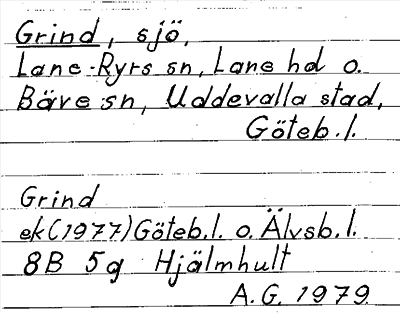 Grind, sjö,
Lane-Ryrs sn, Lane hd o.
Bäve sn, Uddevalla stad,
Göteb.l.
Grind
ek(1977)Göteb.l. o. Älvsb.l.
8B 5g Hjälmhult
A.G. 1979